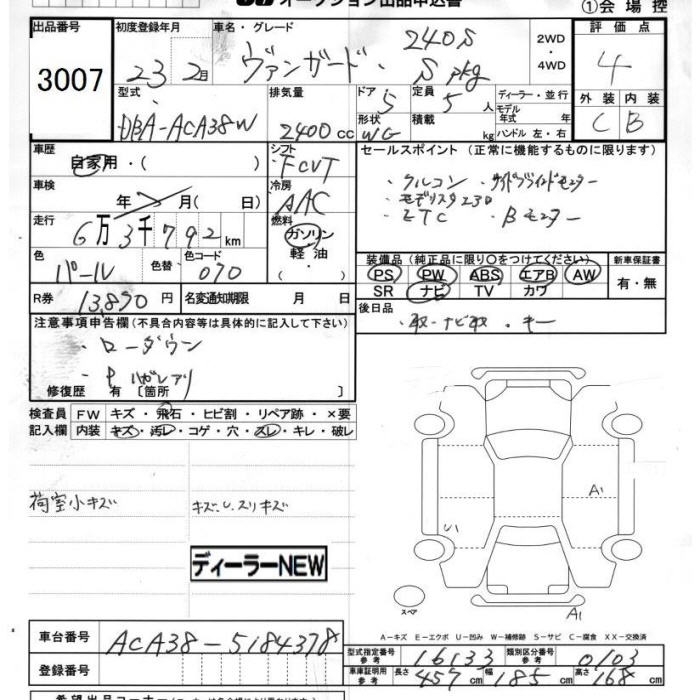 オークション出品申込書
①会 場 控
出品番号
3007
初度登録年月
23 2月
車名・グレード
ヴァンガード・ 240S
S pkg
2WD
・
4WD
評 価 点
4
外 装 内 装
C B
型式
DBA-ACA38W
排気量
2400 cc
ドア
5
形状
WG
定員
5 人
積載
kg
ディーラー・並行
モデル
年式 年
ハンドル 左・右
車歴
自家用・( )
シフト
FCVT
車検
年 月( 日)
冷房
AAC
走行
6万3千792km
燃料
ガソリン
軽 油
・
( )
色
パール
色替
色コード
070
R券
13,890 円
名変通知期限 月 日
セールスポイント (正常に機能するものに限ります)
・クルコン ・サイドブラインドモニター
・モデリスタエアロ
・ETC ・Bモニター
装備品 (純正品に限り○をつけてください)
PS PW ABS エアB AW
SR ナビ TV カワ
新車保証書
有・無
後日品
・取・ナビ取 ・キー
注意事項申告欄(不具合内容等は具体的に記入して下さい)
・ローダウン
修復歴 有 〔箇所 〕
検査員
記入欄
FW キズ・飛石・ヒビ割・リペア跡・×要
内装 キズ・汚レ・コゲ・穴・スレ・キレ・破レ
荷室小キズ
キズ、U、スリキズ
ディーラーNEW
U1
A1
スペア
A1
A-キズ E-エクボ U-凹み W-補修跡 S-サビ C-腐食 XX-交換済
車台番号
ACA38-5184378
登録番号
型式指定番号
参考
16133
類別区分番号
参考
0103
車庫証明用
参考
長さ 457 cm 幅 185 cm 高さ 168 cm